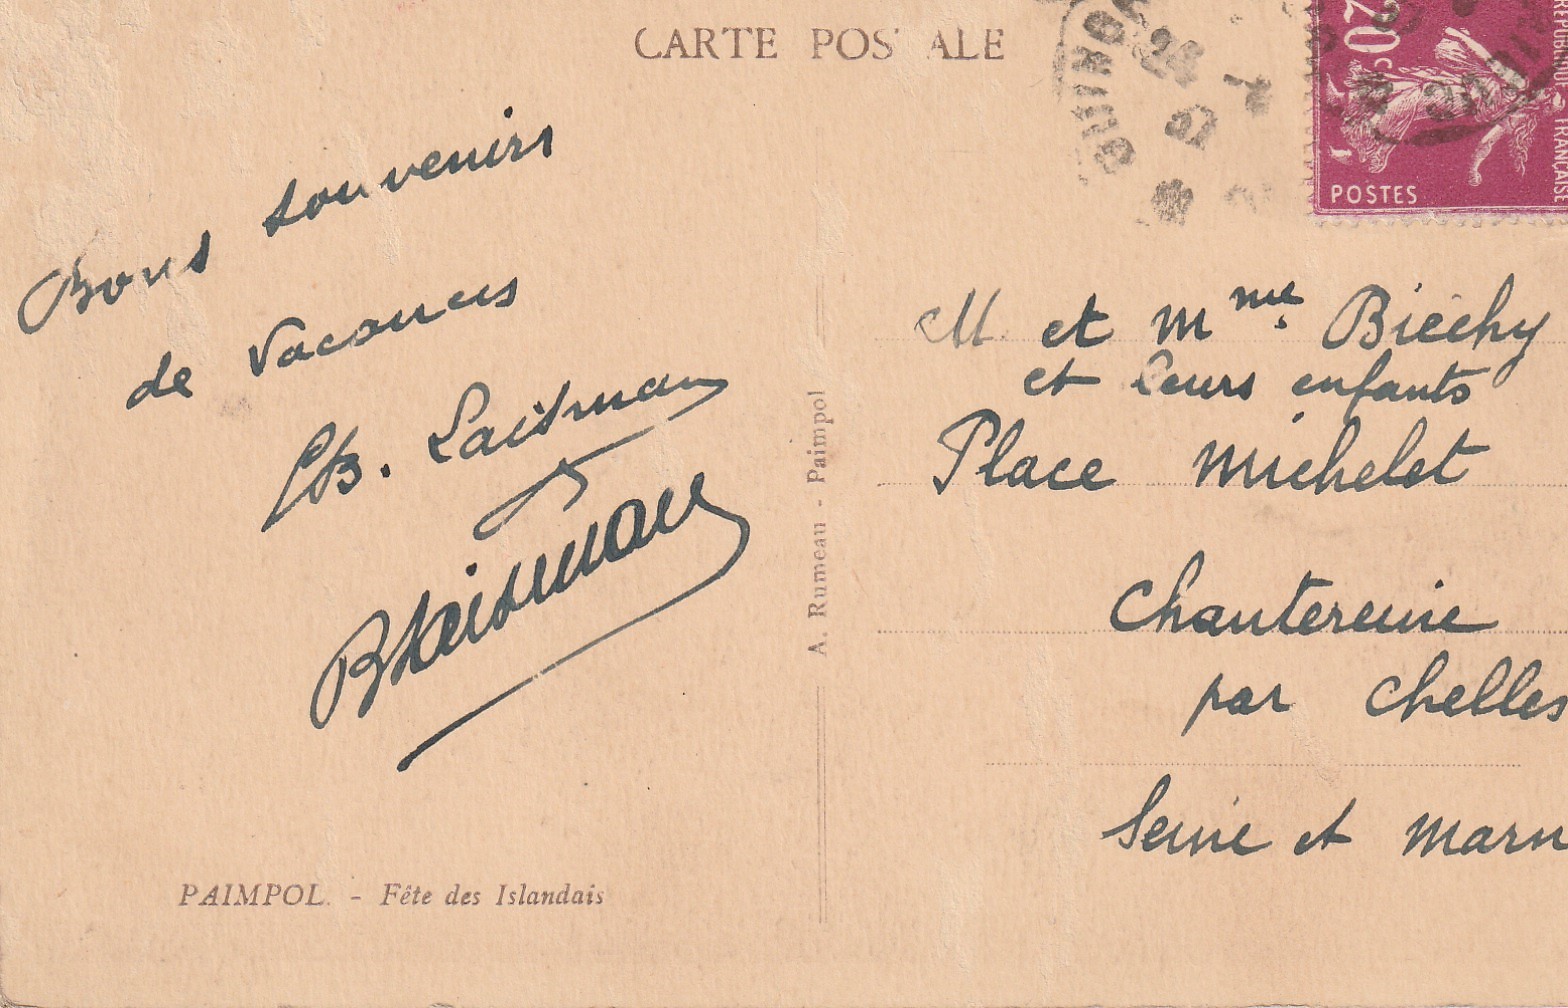 CARTE POSTALE
Bons souvenirs
de vacances
PAIMPOL. - Fête des Islandais
A. Rumeau - Paimpol
20c
POSTES
REPUBLIQUE FRANÇAISE
24
7
37
M. et Mme. Biechy
et leurs enfants
Place Michelet
Chantereine
par Chelles
Seine et Marn